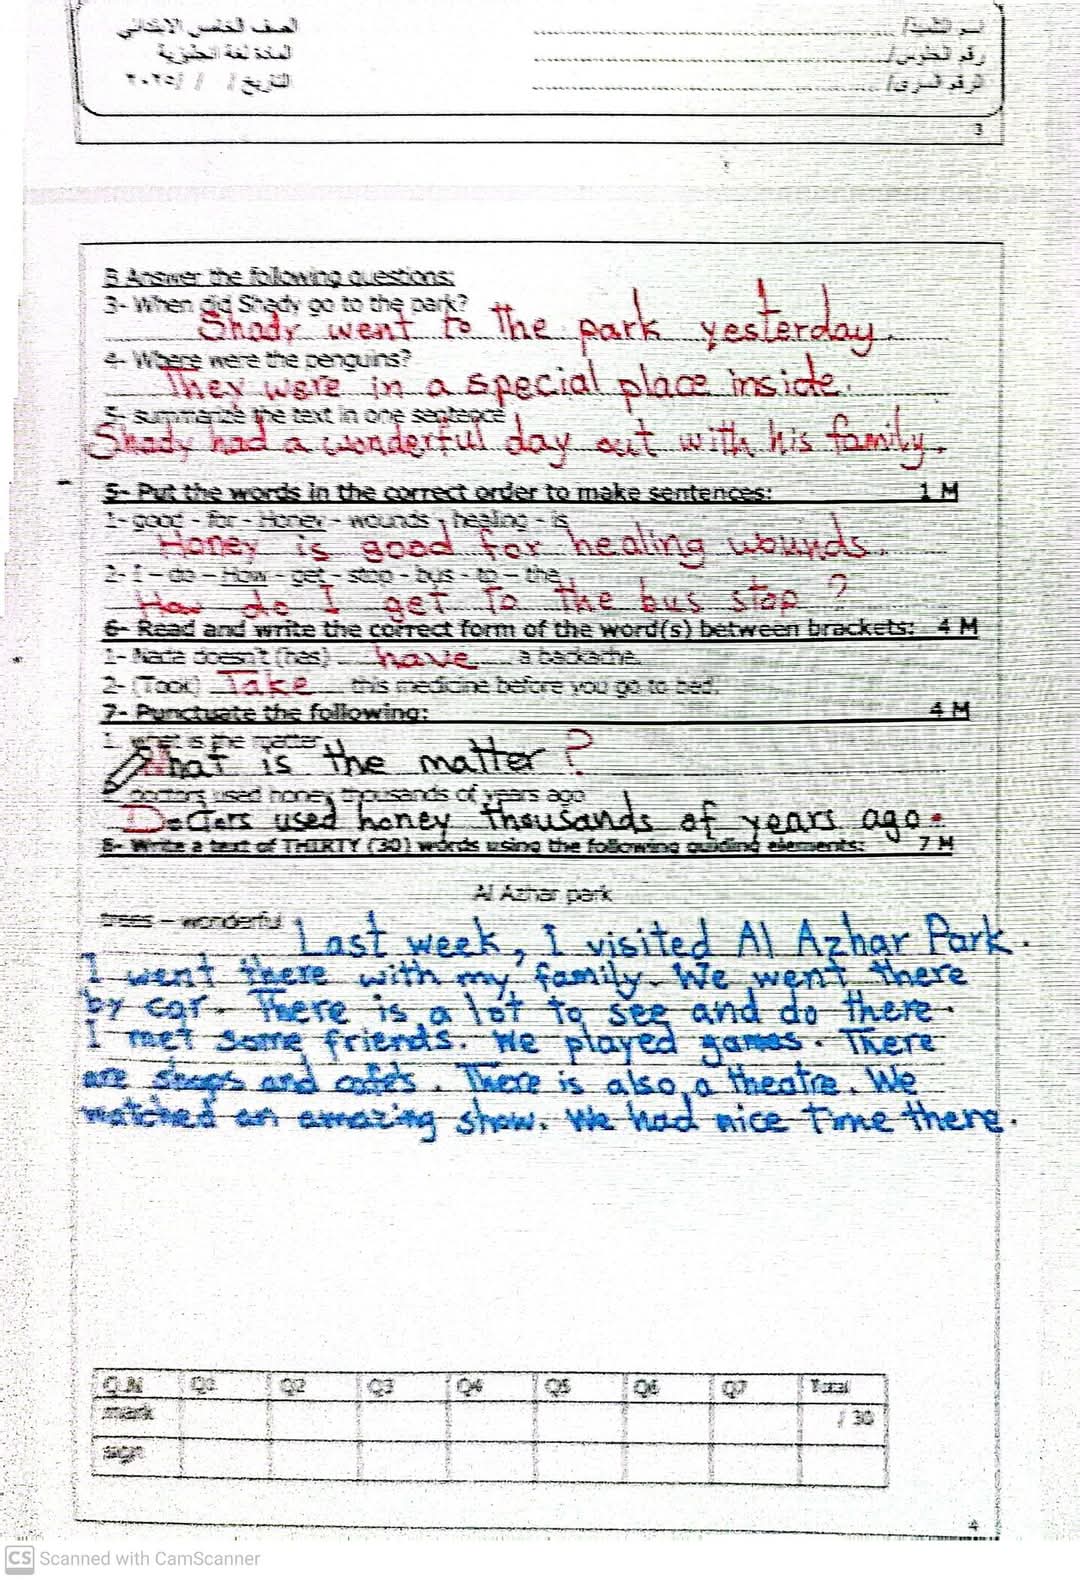 اسم التلميذ/ ........................ الصف الخامس الابتدائي
رقم الجلوس/ ........................ المادة لغة انجليزية
الرقم السري/ ........................ التاريخ / / ٢٠٢٥
3
B Answer the following questions:
3- When did Shady go to the park?
Shady went to the park yesterday.
4- Where were the penguins?
They were in a special place inside.
5- summarize the text in one sentence
Shady had a wonderful day out with his family.
5- Put the words in the correct order to make sentences: 1 M
1- good - for - Honey - wounds - healing - is
Honey is good for healing wounds.
2- I - do - How - get - stop - bus - to - the
How do I get to the bus stop?
6- Read and write the correct form of the word(s) between brackets: 4 M
1- Nada doesn't (has) have a backache.
2- (Took) Take this medicine before you go to bed.
7- Punctuate the following: 4 M
1. what is the matter
What is the matter?
2. doctors used honey thousands of years ago
Doctors used honey thousands of years ago.
8- Write a text of THIRTY (30) words using the following guiding elements: 7 M
Al Azhar park
trees - wonderful
Last week, I visited Al Azhar Park.
I went there with my family. We went there
by car. There is a lot to see and do there.
I met some friends. We played games. There
are shops and cafés. There is also a theatre. We
watched an amazing show. We had nice time there.
Q.N Q1 Q2 Q3 Q4 Q5 Q6 Q7 Total
mark / 30
sign
4
CS Scanned with CamScanner